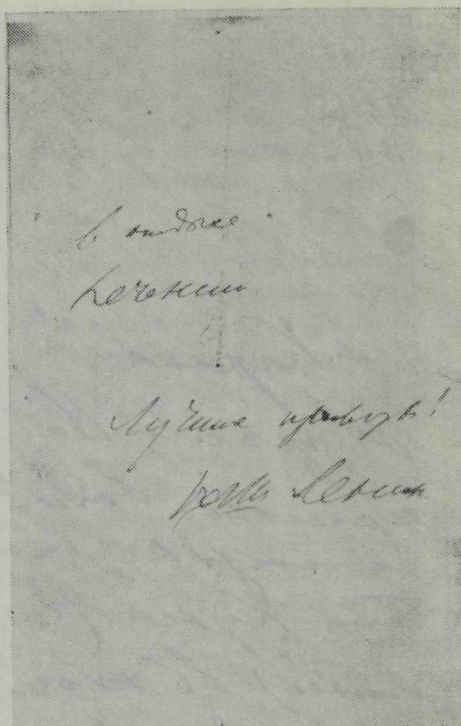 в отдыхе
лечении.
Лучшие приветы!
Ваш Ленин